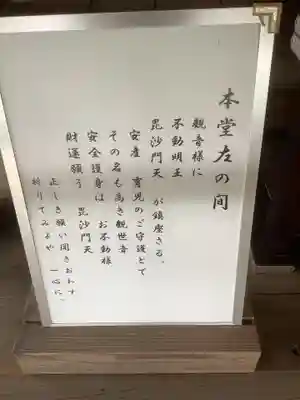 本堂左の間
観音様に
不動明王
毘沙門天 が鎮座さる。
安産 育児のご守護とて
その名も高き観世音
安全護身は お不動様
財運願う 毘沙門天
正しき願い聞きおわす
祈りてみよや 一心に、